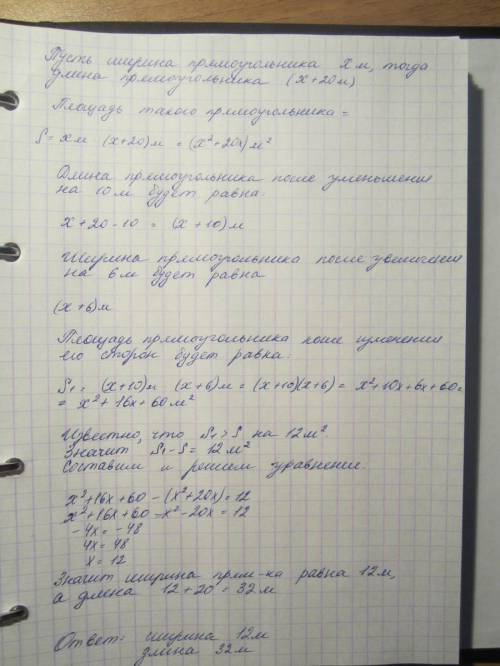 Пусть ширина прямоугольника x м, тогда
длина прямоугольника (x+20м)
Площадь такого прямоугольника =
S = x м (x+20) м = (x²+20x) м²
Длина прямоугольника после уменьшения
на 10 м будет равна:
x + 20 - 10 = (x + 10) м
Ширина прямоугольника после увеличения
на 6 м будет равна
(x + 6) м
Площадь прямоугольника после изменения
его сторон будет равна:
S₁ = (x+10) м (x+6) м = (x+10)(x+6) = x²+10x+6x+60=
= x² + 16x + 60 м²
Известно, что S₁ > S на 12 м².
Значит S₁ - S = 12 м²
Составим и решим уравнение:
x²+16x+60 - (x²+20x) = 12
x²+16x+60 -x² - 20x = 12
-4x = -48
4x = 48
x = 12
Значит ширина прям-ка равна 12м,
а длина 12 + 20 = 32 м
Ответ: ширина 12м
длина 32м